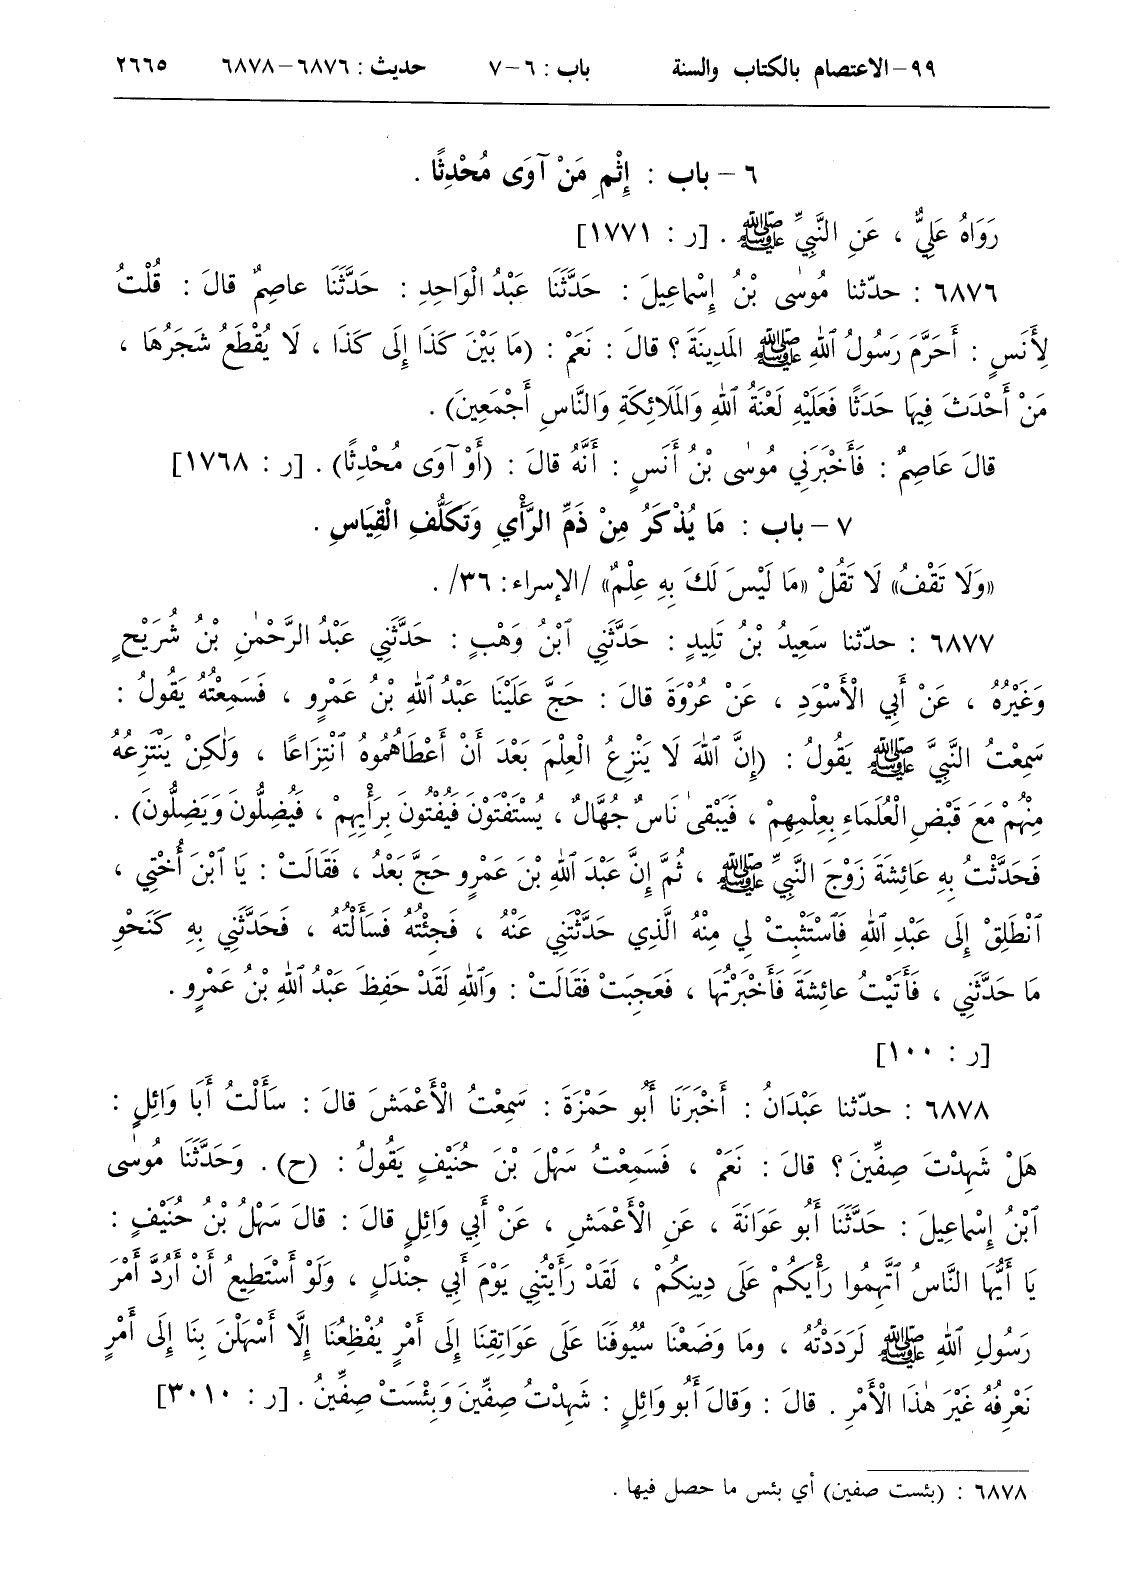 ٩٩-الاعتصام بالكتاب والسنة باب : ٦-٧ حديث : ٦٨٧٦-٦٨٧٨ ٢٦٦٥
٦ - باب : إِثْمِ مَنْ آوَى مُحْدِثًا .
رَوَاهُ عَلِيٌّ ، عَنِ النَّبِيِّ ﷺ . [ر : ١٧٧١]
٦٨٧٦ : حدّثنا مُوسٰى بْنُ إِسْماعِيلَ : حَدَّثَنَا عَبْدُ الْوَاحِدِ : حَدَّثَنَا عاصِمٌ قالَ : قُلْتُ
لِأَنَسٍ : أَحَرَّمَ رَسُولُ ٱللهِ ﷺ المَدِينَةَ ؟ قالَ : نَعَمْ : (مَا بَيْنَ كَذَا إِلَى كَذَا ، لَا يُقْطَعُ شَجَرُهَا ،
مَنْ أَحْدَثَ فِيهَا حَدَثًا فَعَلَيْهِ لَعْنَةُ ٱللهِ وَالمَلَائِكَةِ وَالنَّاسِ أَجْمَعِينَ) .
قالَ عَاصِمٌ : فَأَخْبَرَنِي مُوسٰى بْنُ أَنَسٍ : أَنَّهُ قالَ : (أَوْ آوَى مُحْدِثًا) . [ر : ١٧٦٨]
٧ - باب : مَا يُذْكَرُ مِنْ ذَمِّ الرَّأْيِ وَتَكَلُّفِ الْقِيَاسِ .
«وَلَا تَقْفُ» لَا تَقُلْ «مَا لَيْسَ لَكَ بِهِ عِلْمٌ» /الإسراء: ٣٦/ .
٦٨٧٧ : حدّثنا سَعِيدُ بْنُ تَلِيدٍ : حَدَّثَنِي ٱبْنُ وَهْبٍ : حَدَّثَنِي عَبْدُ الرَّحْمٰنِ بْنُ شُرَيْحٍ
وَغَيْرُهُ ، عَنْ أَبِي الْأَسْوَدِ ، عَنْ عُرْوَةَ قالَ : حَجَّ عَلَيْنَا عَبْدُ اللهِ بْنُ عَمْرٍو ، فَسَمِعْتُهُ يَقُولُ :
سَمِعْتُ النَّبِيَّ ﷺ يَقُولُ : (إِنَّ ٱللهَ لَا يَنْزِعُ الْعِلْمَ بَعْدَ أَنْ أَعْطَاهُمُوهُ ٱنْتِزَاعًا ، وَلٰكِنْ يَنْتَزِعُهُ
مِنْهُمْ مَعَ قَبْضِ الْعُلَمَاءِ بِعِلْمِهِمْ ، فَيَبْقىٰ نَاسٌ جُهَّالٌ ، يُسْتَفْتَوْنَ فَيُفْتُونَ بِرَأْيِهِمْ ، فَيُضِلُّونَ وَيَضِلُّونَ) .
فَحَدَّثْتُ بِهِ عَائِشَةَ زَوْجَ النَّبِيِّ ﷺ ، ثُمَّ إِنَّ عَبْدَ اللهِ بْنَ عَمْرٍو حَجَّ بَعْدُ ، فَقَالَتْ : يَا ٱبْنَ أُخْتِي ،
ٱنْطَلِقْ إِلَى عَبْدِ اللهِ فَٱسْتَثْبِتْ لِي مِنْهُ الَّذِي حَدَّثْتَنِي عَنْهُ ، فَجِئْتُهُ فَسَأَلْتُهُ ، فَحَدَّثَنِي بِهِ كَنَحْوِ
مَا حَدَّثَنِي ، فَأَتَيْتُ عائِشَةَ فَأَخْبَرْتُهَا ، فَعَجِبَتْ فَقَالَتْ : وَٱللهِ لَقَدْ حَفِظَ عَبْدُ اللهِ بْنُ عَمْرٍو .
[ر : ١٠٠]
٦٨٧٨ : حدّثنا عَبْدَانُ : أَخْبَرَنَا أَبُو حَمْزَةَ : سَمِعْتُ الْأَعْمَشَ قالَ : سَأَلْتُ أَبَا وَائِلٍ :
هَلْ شَهِدْتَ صِفِّينَ ؟ قالَ : نَعَمْ ، فَسَمِعْتُ سَهْلَ بْنَ حُنَيْفٍ يَقُولُ : (ح) . وَحَدَّثَنَا مُوسٰى
ٱبْنُ إِسْماعِيلَ : حَدَّثَنَا أَبُو عَوَانَةَ ، عَنِ الْأَعْمَشِ ، عَنْ أَبِي وَائِلٍ قالَ : قالَ سَهْلُ بْنُ حُنَيْفٍ :
يَا أَيُّهَا النَّاسُ ٱتَّهِمُوا رَأْيَكُمْ عَلَى دِينِكُمْ ، لَقَدْ رَأَيْتُنِي يَوْمَ أَبِي جَنْدَلٍ ، وَلَوْ أَسْتَطِيعُ أَنْ أَرُدَّ أَمْرَ
رَسُولِ ٱللهِ ﷺ لَرَدَدْتُهُ ، وما وَضَعْنَا سُيُوفَنَا عَلَى عَوَاتِقِنَا إِلَى أَمْرٍ يُفْظِعُنَا إِلَّا أَسْهَلْنَ بِنَا إِلَى أَمْرٍ
نَعْرِفُهُ غَيْرَ هٰذَا الْأَمْرِ . قالَ : وَقالَ أَبُو وَائِلٍ : شَهِدْتُ صِفِّينَ وَبِئْسَتْ صِفِّينُ . [ر : ٣٠١٠]
٦٨٧٨ : (بئست صفين) أي بئس ما حصل فيها .